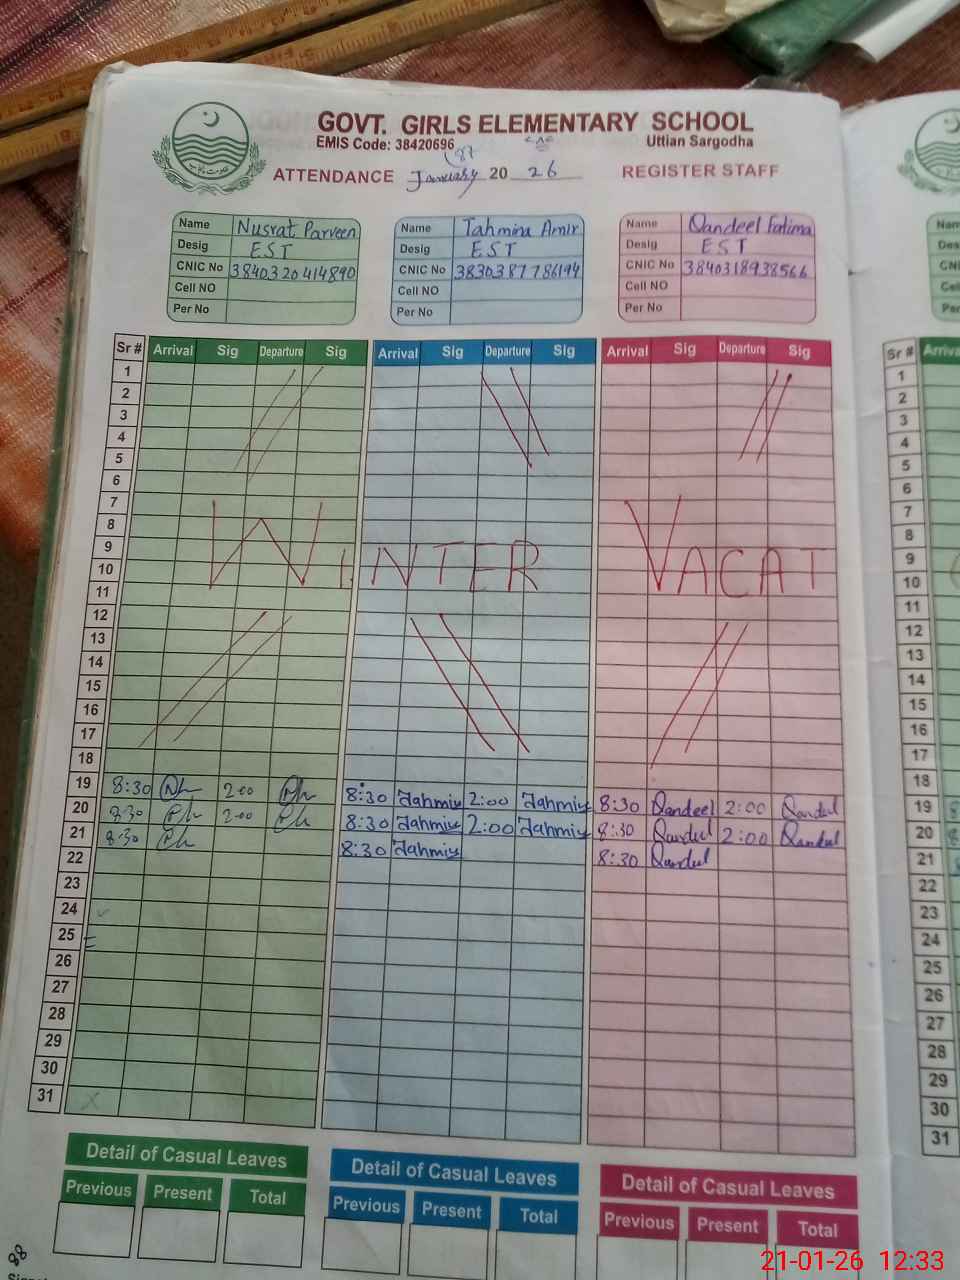 GOVT. GIRLS ELEMENTARY SCHOOL
EMIS Code: 38420696 Uttian Sargodha
ATTENDANCE January 20 26 REGISTER STAFF
Name Nusrat Parveen
Desig EST
CNIC No 3840320414890
Cell NO
Per No
Name Tahmina Amir
Desig EST
CNIC No 3830387786194
Cell NO
Per No
Name Qandeel Fatima
Desig EST
CNIC No 3840318938566
Cell NO
Per No
Sr # Arrival Sig Departure Sig Arrival Sig Departure Sig Arrival Sig Departure Sig
1
2
3
4
5
6
7
8
9
10
11
WINTER VACAT
12
13
14
15
16
17
18
19 8:30 2:00 8:30 Tahmin 2:00 Tahmin 8:30 Qandeel 2:00 Qandeel
20 8:30 2:00 8:30 Tahmin 2:00 Tahmin 8:30 Qandeel 2:00 Qandeel
21 8:30 8:30 Tahmin 8:30 Qandeel
22
23
24
25
26
27
28
29
30
31
Detail of Casual Leaves
Previous Present Total
Detail of Casual Leaves
Previous Present Total
Detail of Casual Leaves
Previous Present Total
Sr #
1
2
3
4
5
6
7
8
9
10
11
12
13
14
15
16
17
18
19
20
21
22
23
24
25
26
27
28
29
30
31
88
21-01-26 12:33